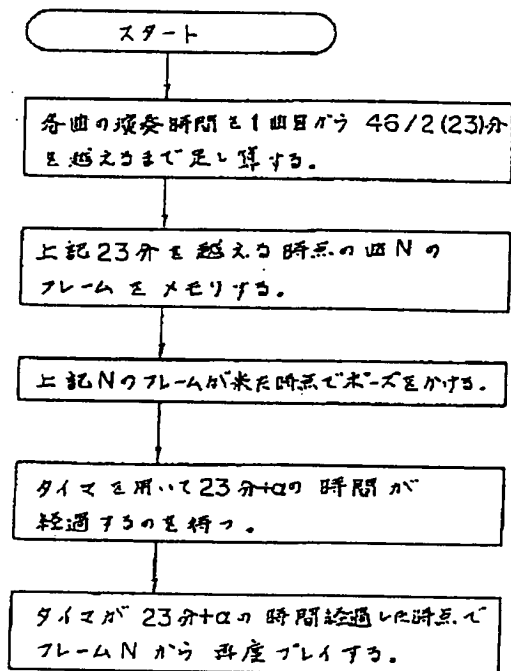 スタート
各曲の演奏時間を1曲目から 46/2(23)分
を越えるまで足し算する。
上記23分を越える時点の曲Nの
フレームをメモリする。
上記Nのフレームが来た時点でポーズをかける。
タイマを用いて23分+αの時間が
経過するのを待つ。
タイマが23分+αの時間経過した時点で
フレームNから再度プレイする。